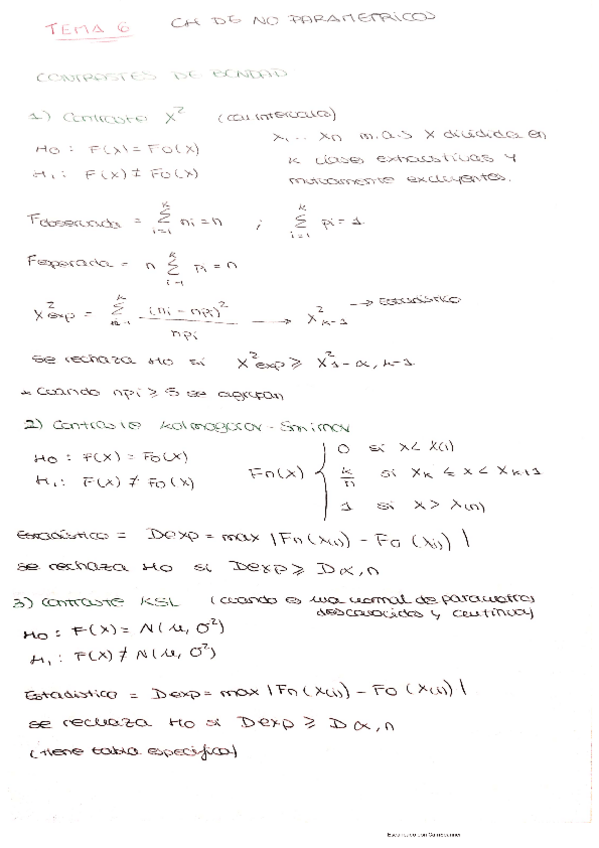 TEMA 6 CH DE NO PARAMETRICOS
CONTRASTES DE BONDAD
1) Contraste X² (con intervalos)
H0 : F(X) = F0(X)
H1 : F(X) ≠ F0(X)
X1 ... Xn m.a.s X dividida en
K clases exhaustivas y
mutuamente excluyentes.
Fobservada = Σ(i=1..k) ni = n ; Σ(i=1..k) pi = 1
Fesperada = n Σ(i=1..k) pi = n
X²exp = Σ (ni - npi)² / npi → X²k-1 → Estadístico
se rechaza H0 si X²exp ≥ X²1-α, k-1
* Cuando npi ≥ 5 se agrupan
2) Contraste Kolmogorov - Smirnov
H0 : F(X) = F0(X)
H1 : F(X) ≠ F0(X)
Fn(X) { 0 si X < X(1)
k/n si XK ≤ X < XK+1
1 si X > X(n)
Estadístico = Dexp = max |Fn(X(i)) - F0(X(i))|
se rechaza H0 si Dexp ≥ Dα,n
3) Contraste KSL (cuando es una normal de parametros
desconocidos y continua)
H0 : F(X) = N(μ, σ²)
H1 : F(X) ≠ N(μ, σ²)
Estadístico = Dexp = max |Fn(X(i)) - F0(X(i))|
se rechaza H0 si Dexp ≥ Dα,n
(tiene tabla especifica)
Escaneado con CamScanner